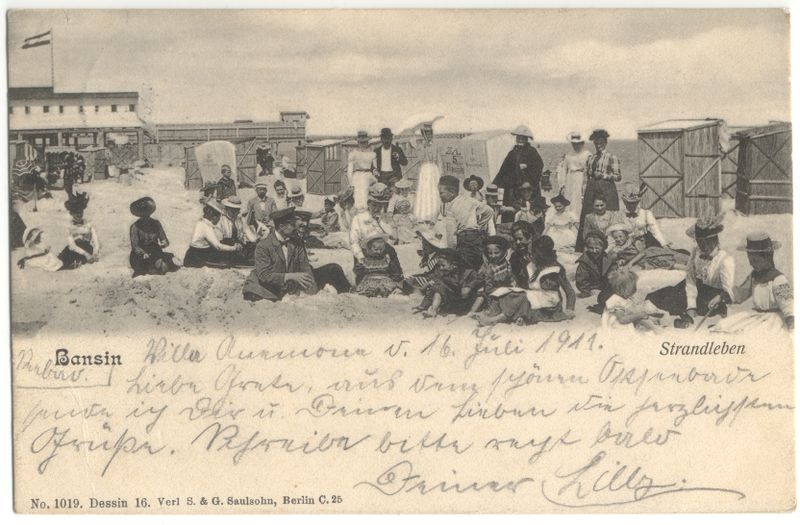 Bansin Villa Anemone d. 16. Juli 1911. Strandleben
Liebe Grete, aus dem schönen Ostseebade
sende ich Dir u. Deinen Lieben die herzlichsten
Grüße. Schreibe bitte recht bald
Deiner Lilly.
No. 1019. Dessin 16. Verl S. & G. Saulsohn, Berlin C. 25